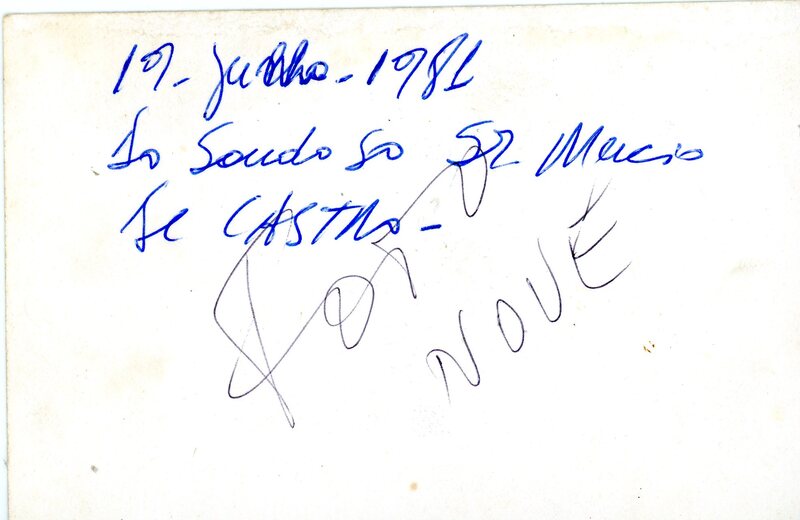 19 - Julho - 1981
do saudoso Sr Mucio
de CASTRO -
Foto
NOVE